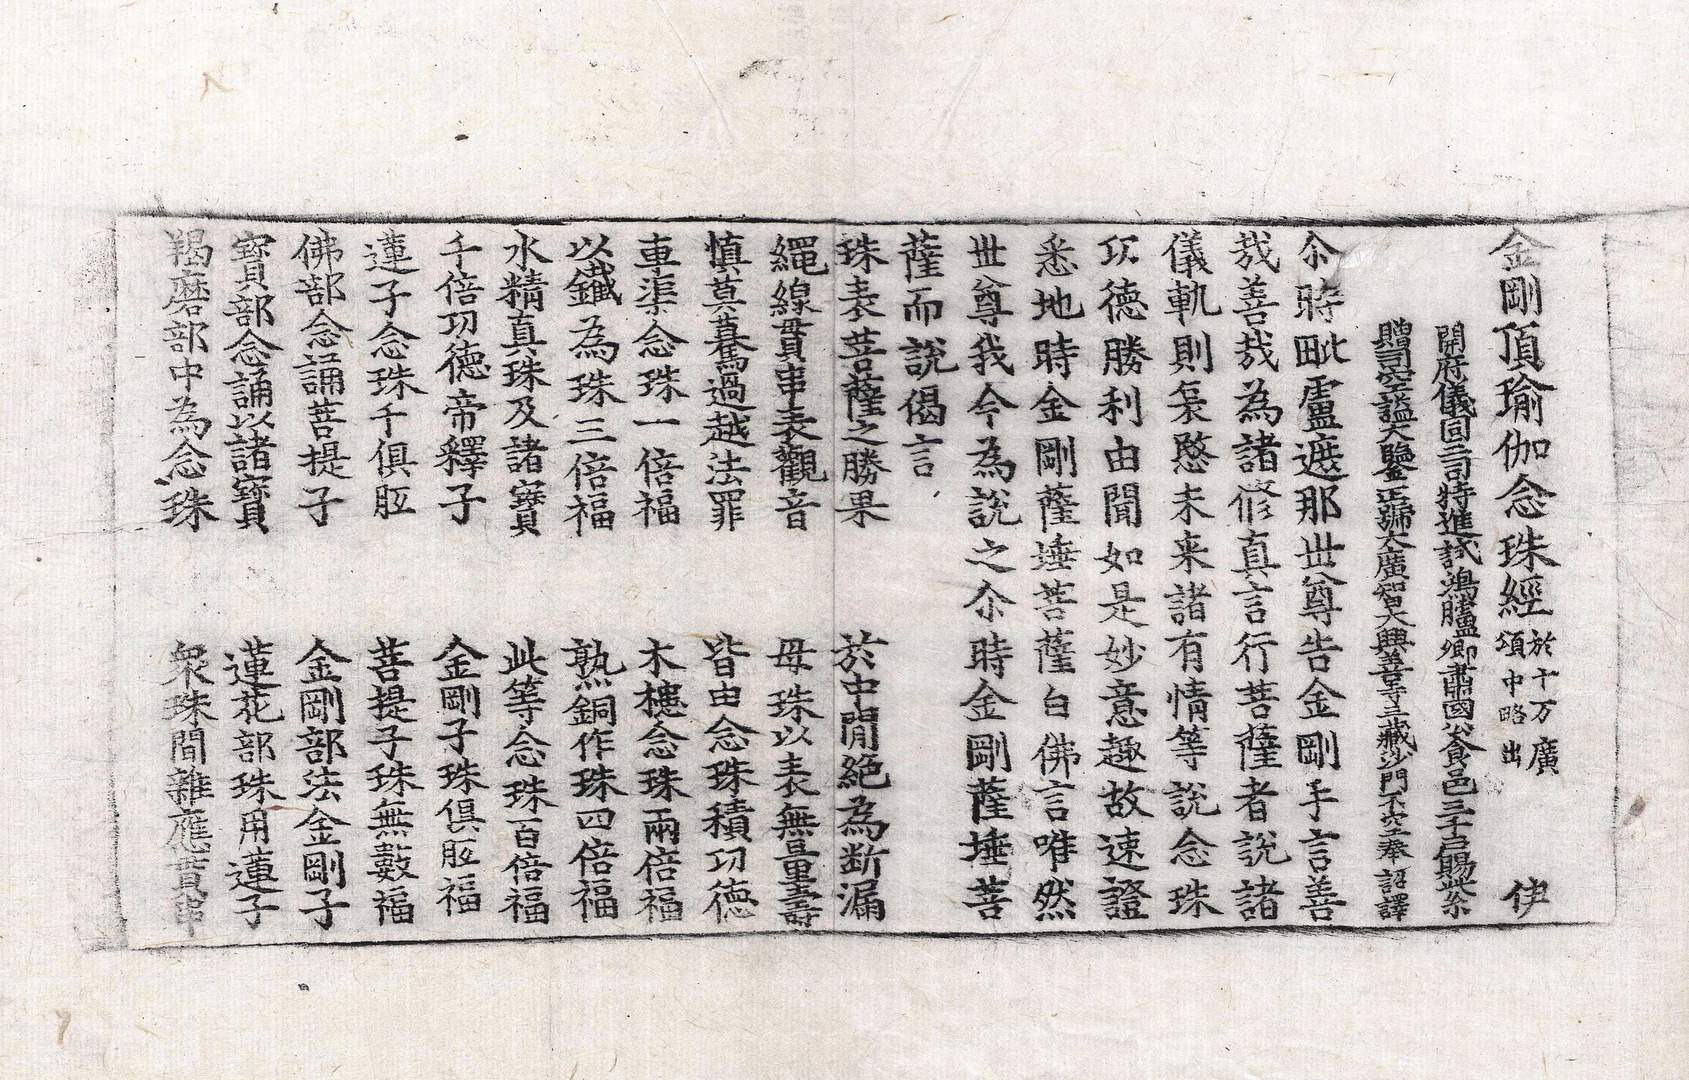 金剛頂瑜伽念珠經 於十万廣頌中略出 伊
開府儀同三司特進試鴻臚卿肅國公食邑三千戶賜紫
贈司空謚大鑒正號大廣智大興善寺三藏沙門不空奉 詔譯
尒時毗盧遮那世尊告金剛手言善
哉善哉為諸修真言行菩薩者說諸
儀軌則哀愍未来諸有情等說念珠
功德勝利由聞如是妙意趣故速證
悉地時金剛薩埵菩薩白佛言唯然
世尊我今為說之尒時金剛薩埵菩
薩而說偈言
珠表菩薩之勝果 於中閒絶為断漏
繩線貫串表觀音 母珠以表無量壽
慎莫驀過越法罪 皆由念珠積功德
車渠念珠一倍福 木槵念珠兩倍福
以鐵為珠三倍福 熟銅作珠四倍福
水精真珠及諸寶 此等念珠百倍福
千倍功德帝釋子 金剛子珠俱胝福
蓮子念珠千俱胝 菩提子珠無數福
佛部念誦菩提子 金剛部法金剛子
寶部念誦以諸寶 蓮花部珠用蓮子
羯磨部中為念珠 衆珠間雜應貫串